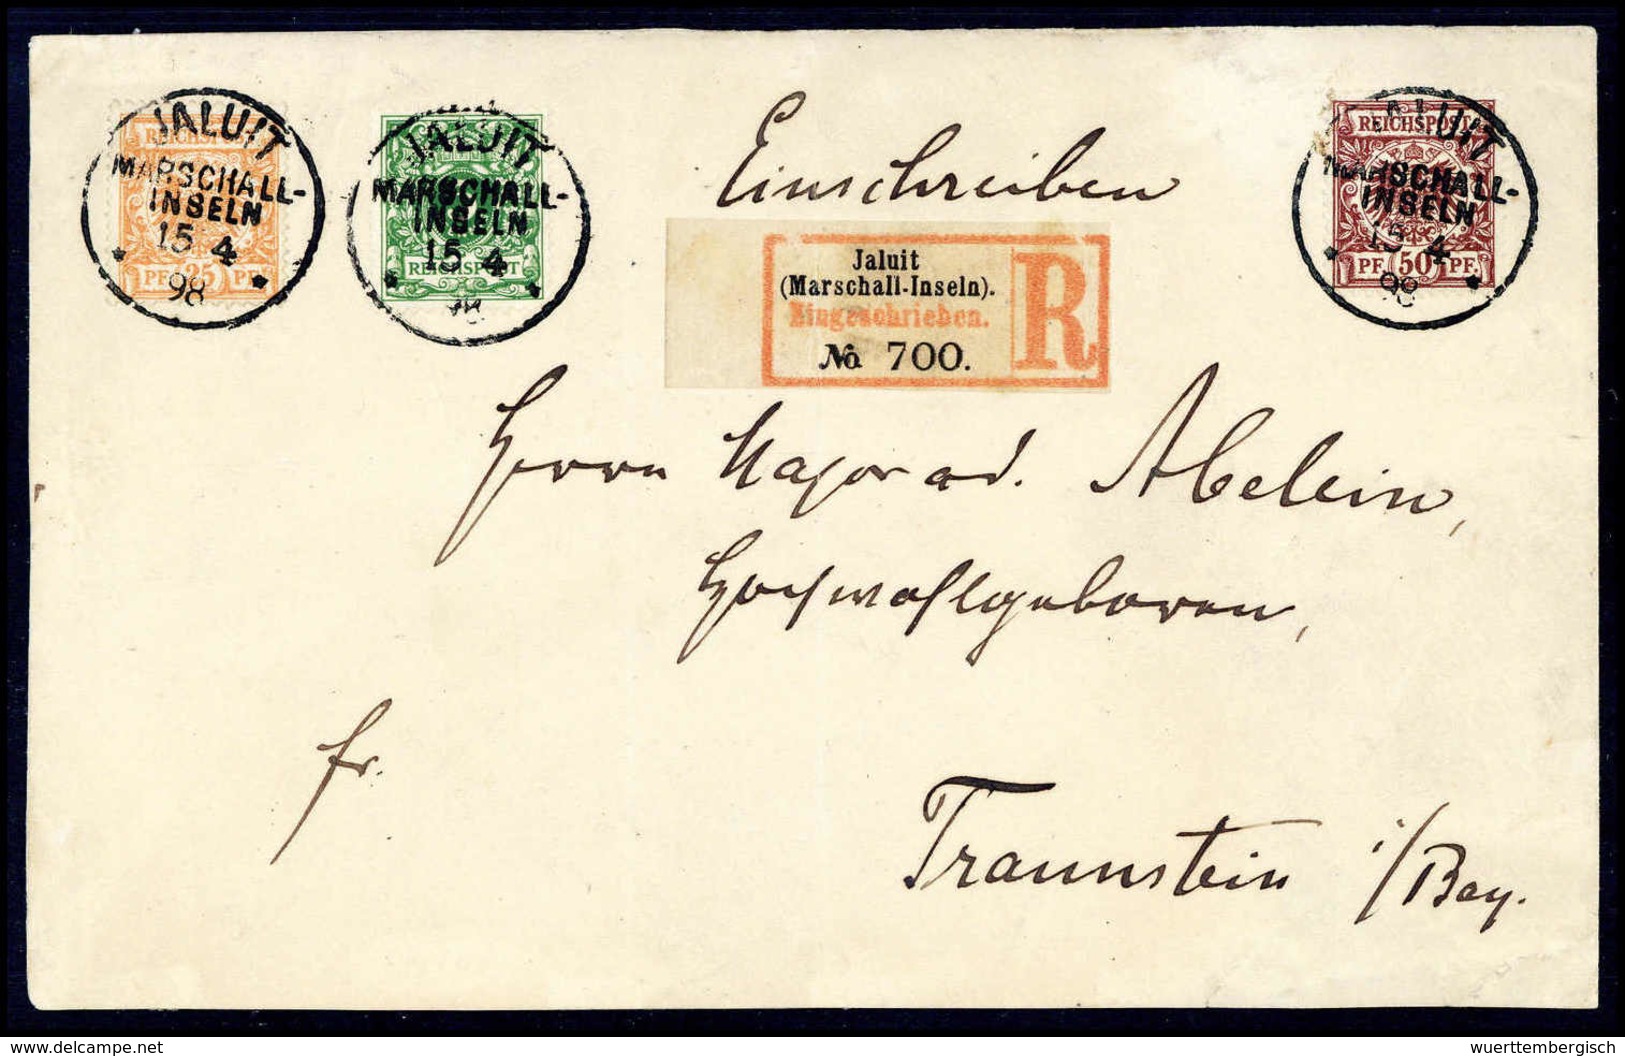 JALUIT
MARSCHALL-
INSELN
15 4
98
REICHSPOST
PF. 25 PF.
JALUIT
MARSCHALL-
INSELN
15 4
98
REICHSPOST
Einschreiben
JALUIT
MARSCHALL-
INSELN
15 4
98
REICHSPOST
PF. 50 PF.
Jaluit
(Marschall-Inseln).
Eingeschrieben.
R
No 700.
Herrn Major ad. Abelein,
Hochwohlgeboren,
fr.
Traunstein i/Bay.
(c) delcampe.net
wuerttembergisch